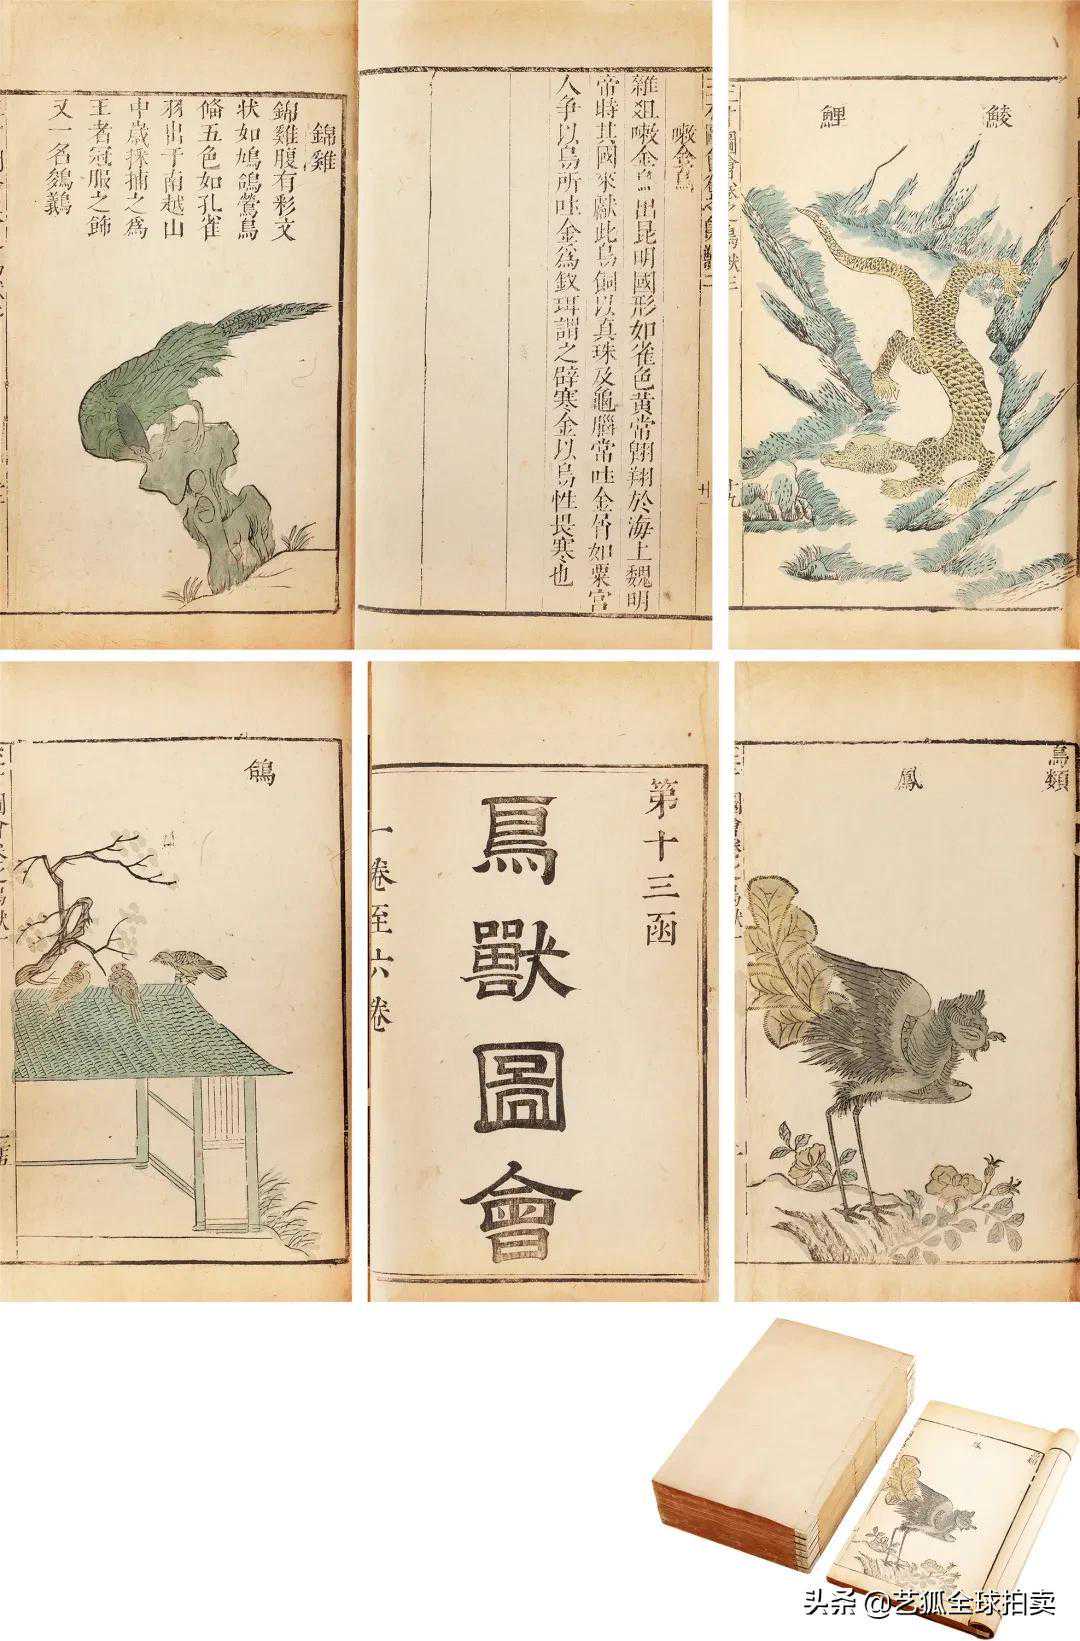 錦雞
錦雞腹有彩文
状如鳩鴿鶯鳥
俻五色如孔雀
羽出于南越山
中歲採捕之為
王者冠服之飾
又一名鵔鸃
嗽金鳥
雜俎嗽金鳥出昆明國形如雀色黄常翱翔於海上魏明
帝時其國來獻此鳥飼以真珠及龜腦常哇金屑如粟宫
人争以鳥所哇金為釵珥謂之辟寒金以鳥性畏寒也
廿
鯪鯉
圖會卷之鳥獸三
十九
鴿
第十三函
鳥獸圖會
一卷至六卷
鳥類
鳳
頭条 @艺狐全球拍卖